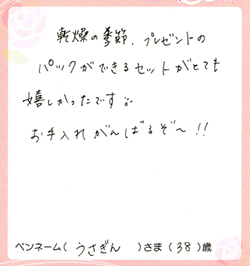 乾燥の季節、プレゼントの
パックができるセットがとても
嬉しかったです
お手入れがんばるぞ〜!!
ペンネーム( うさぎん )さま(38)歳